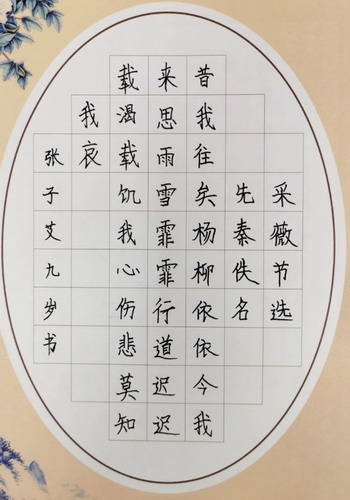 采薇节选
先秦佚名
昔我往矣杨柳依依今我
来思雨雪霏霏行道迟迟
载渴载饥我心伤悲莫知
我哀
张子艾九岁书